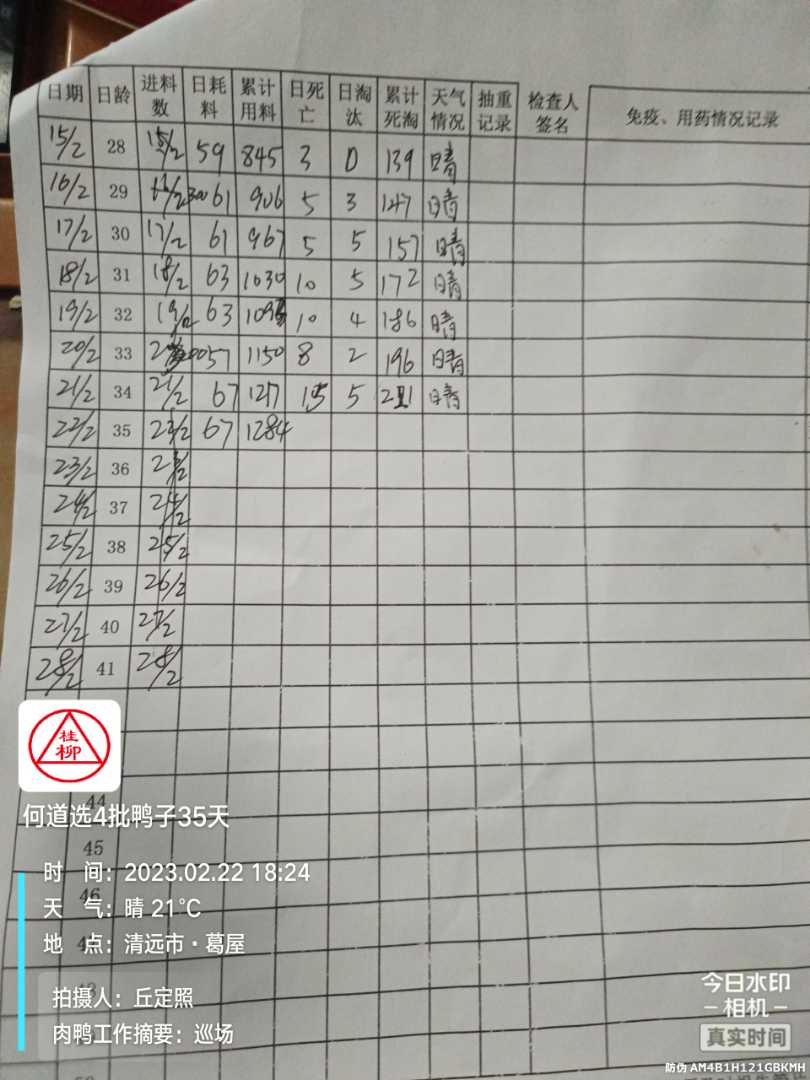 日期 日龄 进料数 日耗料 累计用料 日死亡 日淘汰 累计死淘 天气情况 抽重记录 检查人签名 免疫、用药情况记录
15/2 28 15/2 59 845 3 0 139 晴
16/2 29 61 906 5 3 147 晴
17/2 30 17/2 61 967 5 5 157 晴
18/2 31 18/2 63 1030 10 5 172 晴
19/2 32 19/2 63 10 4 186 晴
20/2 33 57 1150 8 2 196 晴
21/2 34 21/2 67 1217 15 5 晴
22/2 35 22/2 67 1284
23/2 36 23/2
24/2 37 24/2
25/2 38 25/2
26/2 39 26/2
27/2 40 27/2
28/2 41 28/2
桂柳
44
何道选4批鸭子35天
45
时 间：2023.02.22 18:24
46
天 气：晴 21℃
地 点：清远市·葛屋
拍摄人：丘定照
肉鸭工作摘要：巡场
今日水印
-相机-
真实时间
防伪 AM4B1H121GBKMH